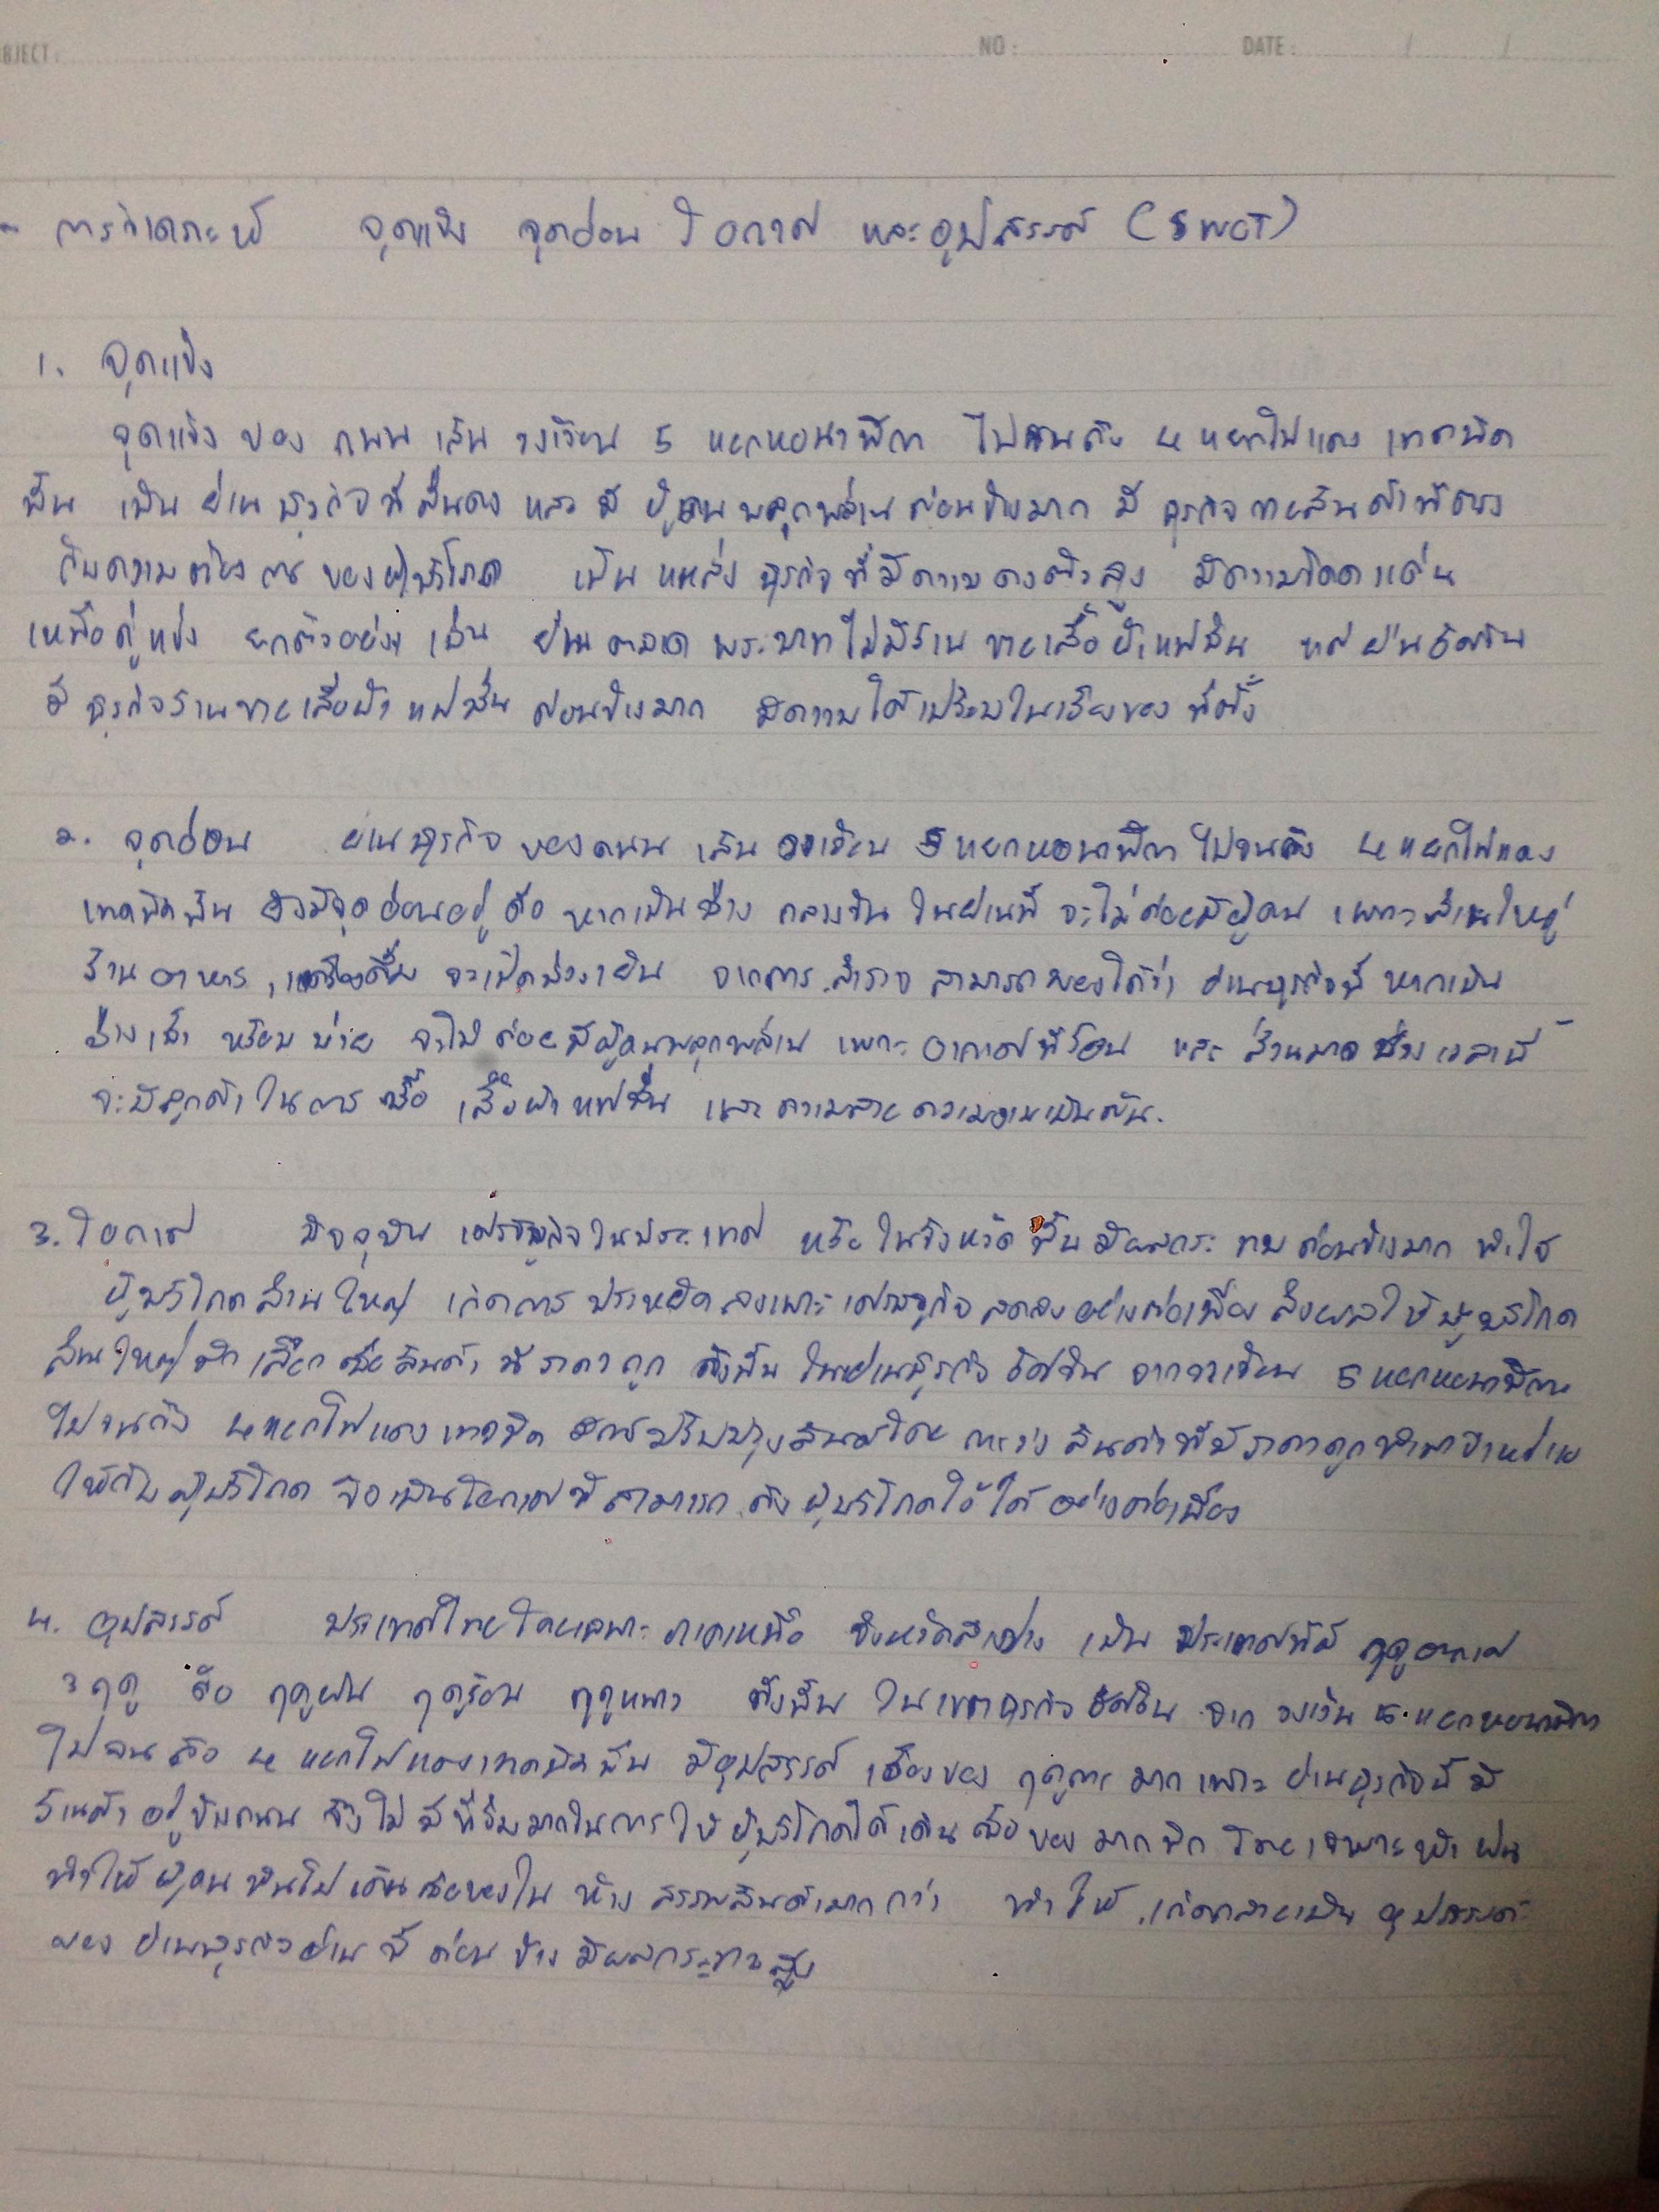 SUBJECT: NO: DATE: / /
- การวิเคราะห์ จุดแข็ง จุดอ่อน โอกาส และอุปสรรค์ (SWOT)
1. จุดแข็ง
จุดแข็ง ของ ถนน เส้น วงเวียน 5 แยกหอนาฬิกา ไปจนถึง 4 แยกไฟแดง
นั้น เป็น ย่าน ธุรกิจ ที่ และ มี ผู้คน พลุกพล่าน ค่อนข้างมาก มี ธุรกิจ ขายสินค้าที่ตรง
กับความต้องการ ของผู้บริโภค เป็น แหล่ง ธุรกิจ ที่มีความคงตัวสูง มีความโดดเด่น
เหนือคู่แข่ง ยกตัวอย่าง เช่น ย่าน ตลาด พระบาท ไม่มีร้าน ขายเสื้อผ้าแฟชั่น แต่ ย่าน
มี ธุรกิจร้านขายเสื้อผ้า แฟชั่น ค่อนข้างมาก มีความได้เปรียบในเรื่องของ ที่ตั้ง
2. จุดอ่อน ย่านธุรกิจ ของถนน เส้น วงเวียน 5 แยกหอนาฬิกา ไปจนถึง 4 แยกไฟแดง
มีจุดอ่อนอยู่ คือ หากเป็นช่วง กลางวัน ในย่านนี้ จะไม่ค่อยมีผู้คน เพราะส่วนใหญ่
ร้าน อาหาร , เครื่องดื่ม จะเปิดช่วงเย็น จากการ สำรวจ สามารถมองได้ว่า ย่านธุรกิจนี้ หากเป็น
ช่วงเช้า หรือ บ่าย จะไม่ ค่อยมีผู้คนพลุกพล่าน เพราะ อากาศที่ร้อน และ ส่วนมาก ช่วงเวลานี้
จะมีลูกค้า ในการ ซื้อ เสื้อผ้า แฟชั่น และ ความสวย ความงามเป็นต้น.
3. โอกาส ปัจจุบัน เศรษฐกิจในประเทศ หรือ ในจังหวัด นั้น มีผลกระทบ ค่อนข้างมาก ทำให้
ผู้บริโภค ส่วนใหญ่ เกิดการ ประหยัด ลงเพราะ เศรษฐกิจ ลดลงอย่างต่อเนื่อง ส่งผลให้ ผู้บริโภค
ส่วนใหญ่ เลือก ซื้อ สินค้า ที่ ราคา ถูก ดังนั้น ในย่านธุรกิจ จากวงเวียน 5 แยกหอนาฬิกา
ไปจนถึง 4 แยกไฟแดง สินค้าที่มี ราคาถูก
ให้กับ ผู้บริโภค จึงเป็นโอกาสที่สามารถ ดึง ผู้บริโภคไว้ ได้ อย่างต่อเนื่อง
4. อุปสรรค์ ประเทศไทยโดยเฉพาะ ภาคเหนือ จังหวัดลำปาง เป็น ประเทศที่มี ฤดูกาล
3 ฤดู คือ ฤดูฝน ฤดูร้อน ฤดูหนาว ดังนั้น ในเขตธุรกิจ จาก วงเวียน 5 แยกหอนาฬิกา
ไปจนถึง 4 แยกไฟแดง มีอุปสรรค์ เรื่องของ ฤดูกาล มาก เพราะ ย่านธุรกิจนี้ มี
ร้านค้า อยู่ข้างถนน จึงไม่ มีที่ร่มมากในการ ให้ ผู้บริโภคได้เดิน ซื้อ ของ มากนัก โดยเฉพาะหน้า ฝน
ทำให้ ผู้คน หันไปเดินซื้อของใน ห้าง สรรพสินค้ามากกว่า ทำให้ เกิดกลายเป็น อุปสรรค์
ของ ย่านธุรกิจย่าน นี้ ค่อน ข้าง มีผลกระทบ สูง